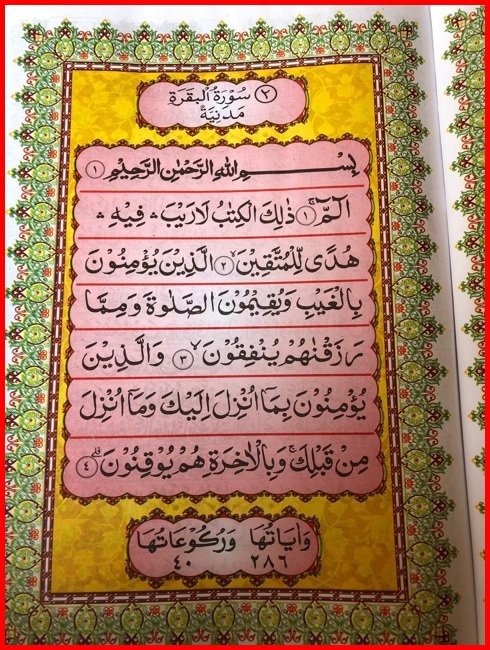 ٢ سُوْرَةُ الْبَقَرَةِ
مَدَنِيَّةٌ
بِسْمِ اللهِ الرَّحْمٰنِ الرَّحِيْمِ ١
الٓمّٓ ۚ ١ ذٰلِكَ الْكِتٰبُ لَارَيْبَ ۛ فِيْهِ ۛ
هُدًى لِّلْمُتَّقِيْنَ ۙ ٢ الَّذِيْنَ يُؤْمِنُوْنَ
بِالْغَيْبِ وَيُقِيْمُوْنَ الصَّلٰوةَ وَمِمَّا
رَزَقْنٰهُمْ يُنْفِقُوْنَ ۙ ٣ وَالَّذِيْنَ
يُؤْمِنُوْنَ بِمَاۤ اُنْزِلَ اِلَيْكَ وَمَاۤ اُنْزِلَ
مِنْ قَبْلِكَ ۚ وَبِالْاٰخِرَةِ هُمْ يُوْقِنُوْنَ ۗ ٤
وَاٰيَاتُهَا وَرُكُوْعَاتُهَا
٢٨٦ ٤٠